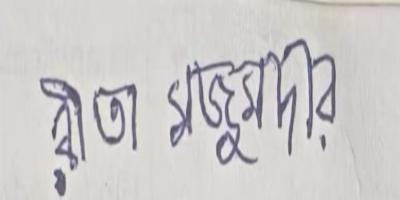 রীতা মজুমদার